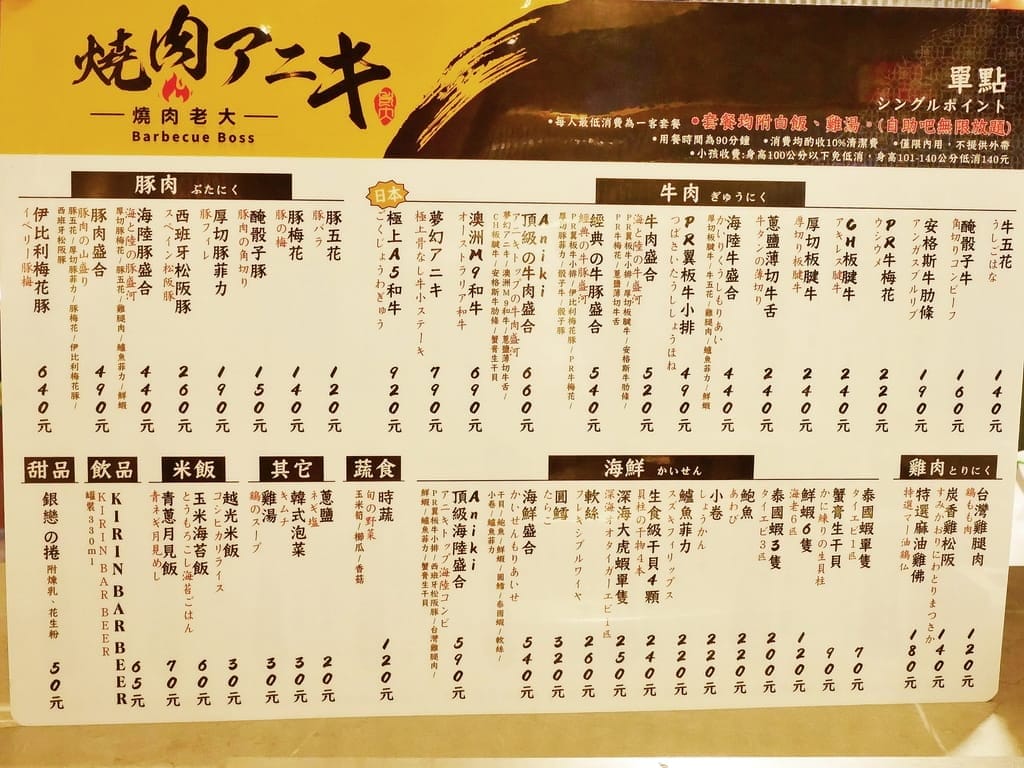 燒肉アニキ
燒肉老大
Barbecue Boss
單點
シングルポイント
•每人最低消費為一客套餐 •套餐均附白飯、雞湯、(自助吧無限放題)
•用餐時間為90分鐘 •消費均酌收10%清潔費 •僅限內用，不提供外帶
•小孩收費:身高100公分以下免低消，身高101-140公分低消140元
牛肉 ぎゅうにく
牛五花
うしごはな
140元
骰子牛
角切りコンビーフ
160元
安格斯牛肋條
アンガスプルリブ
190元
PR牛梅花
ウシウメ
220元
CH板腱牛
アキレス腱牛
240元
厚切板腱牛
厚切り板腱牛
240元
蔥鹽薄切牛舌
牛タンの薄切り
240元
海陸牛盛合
かいりくうしもりあい
440元
PR翼板牛小排
つばさいたうしししょうはね
490元
牛肉盛合
海と陸の牛盛河
520元
經典の牛豚盛合
經典の牛豚盛河
540元
Aniki
頂級の牛肉盛合
アニキトップの牛肉盛河
660元
澳洲M9和牛
オーストラリア和牛
690元
夢幻アニキ
極上骨なし牛小ステーキ
790元
日本
極上A5和牛
ごくじょうわぎゅう
920元
豚肉 ぶたにく
豚五花
豚バラ
120元
豚梅花
豚の梅
140元
醃骰子豚
豚肉の角切り
150元
厚切豚菲力
豚フィレ
190元
西班牙松阪豚
スペイン松阪豚
260元
海陸豚盛合
海と陸の豚盛河
厚切豚梅花/豚五花/雞腿肉/鱸魚菲力/鮮蝦
440元
豚肉盛合
豚肉の山盛り
豚五花/厚切豚菲力/豚梅花/伊比利梅花豚/
西班牙松阪豚
490元
伊比利梅花豚
イベリー豚梅
640元
雞肉 とりにく
台灣雞腿肉
鶏もも肉
120元
炭香雞松阪
すみかおりにわとりまつさか
140元
特選麻油雞佛
特選マー油鶏仏
180元
海鮮 かいせん
泰國蝦單隻
タイエビ1匹
70元
蟹膏生干貝
かに練りの生貝柱
90元
鮮蝦6隻
海老6匹
120元
泰國蝦3隻
タイエビ3匹
200元
鮑魚
あわび
220元
小卷
しょうかん
220元
鱸魚菲力
220元
生食級干貝4顆
貝柱の干物4本
240元
深海大虎蝦單隻
深海オオタイガーエビ1匹
250元
軟絲
フレキシブルワイヤ
260元
圓鱈
たらこ
320元
海鮮盛合
かいせんもりあいせ
干貝/鮑魚/鮮蝦/圓鱈/泰國蝦/軟絲/
小卷/鱸魚菲力
540元
Aniki
頂級海陸盛合
アニキトップ海陸コンビ
PR翼板牛小排/西班牙松阪豚/台灣雞腿肉/
鮮蝦/鱸魚菲力/蟹膏生干貝
590元
蔬食
時蔬
旬の野菜
玉米筍/櫛瓜/香菇
120元
其它
蔥鹽
ネギ塩
20元
韓式泡菜
キムチ
30元
雞湯
鶏のスープ
30元
米飯
越光米飯
コシヒカリライス
30元
玉米海苔飯
とうもろこし海苔ごはん
60元
青蔥月見飯
青ネギ月見めし
70元
飲品
KIRIN BAR BEER
KIRIN BAR BEER
罐裝330ml
65元
甜品
銀戀の捲 附煉乳、花生粉
50元